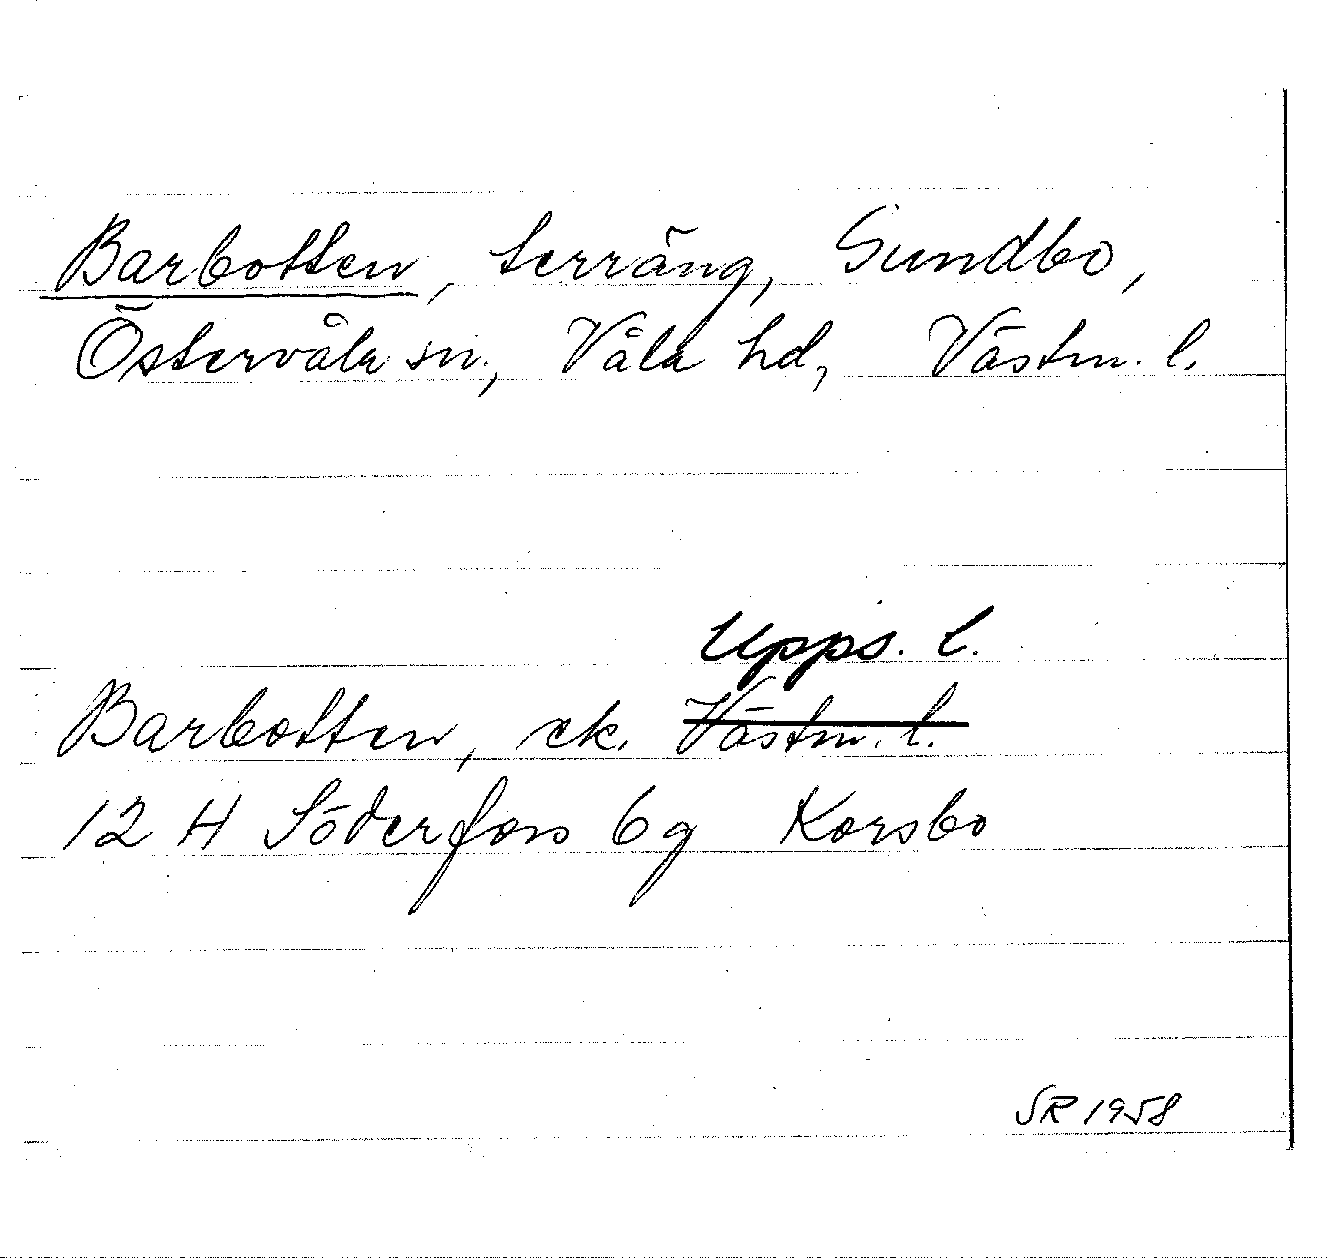 Barbotten, terräng, Sundbo,
Östervåla sn., Våla hd, Västm. l.
Upps. l.
Barbotten, ek. Västm. l.
12 H Söderfors 6g Korsbo
SR 1958